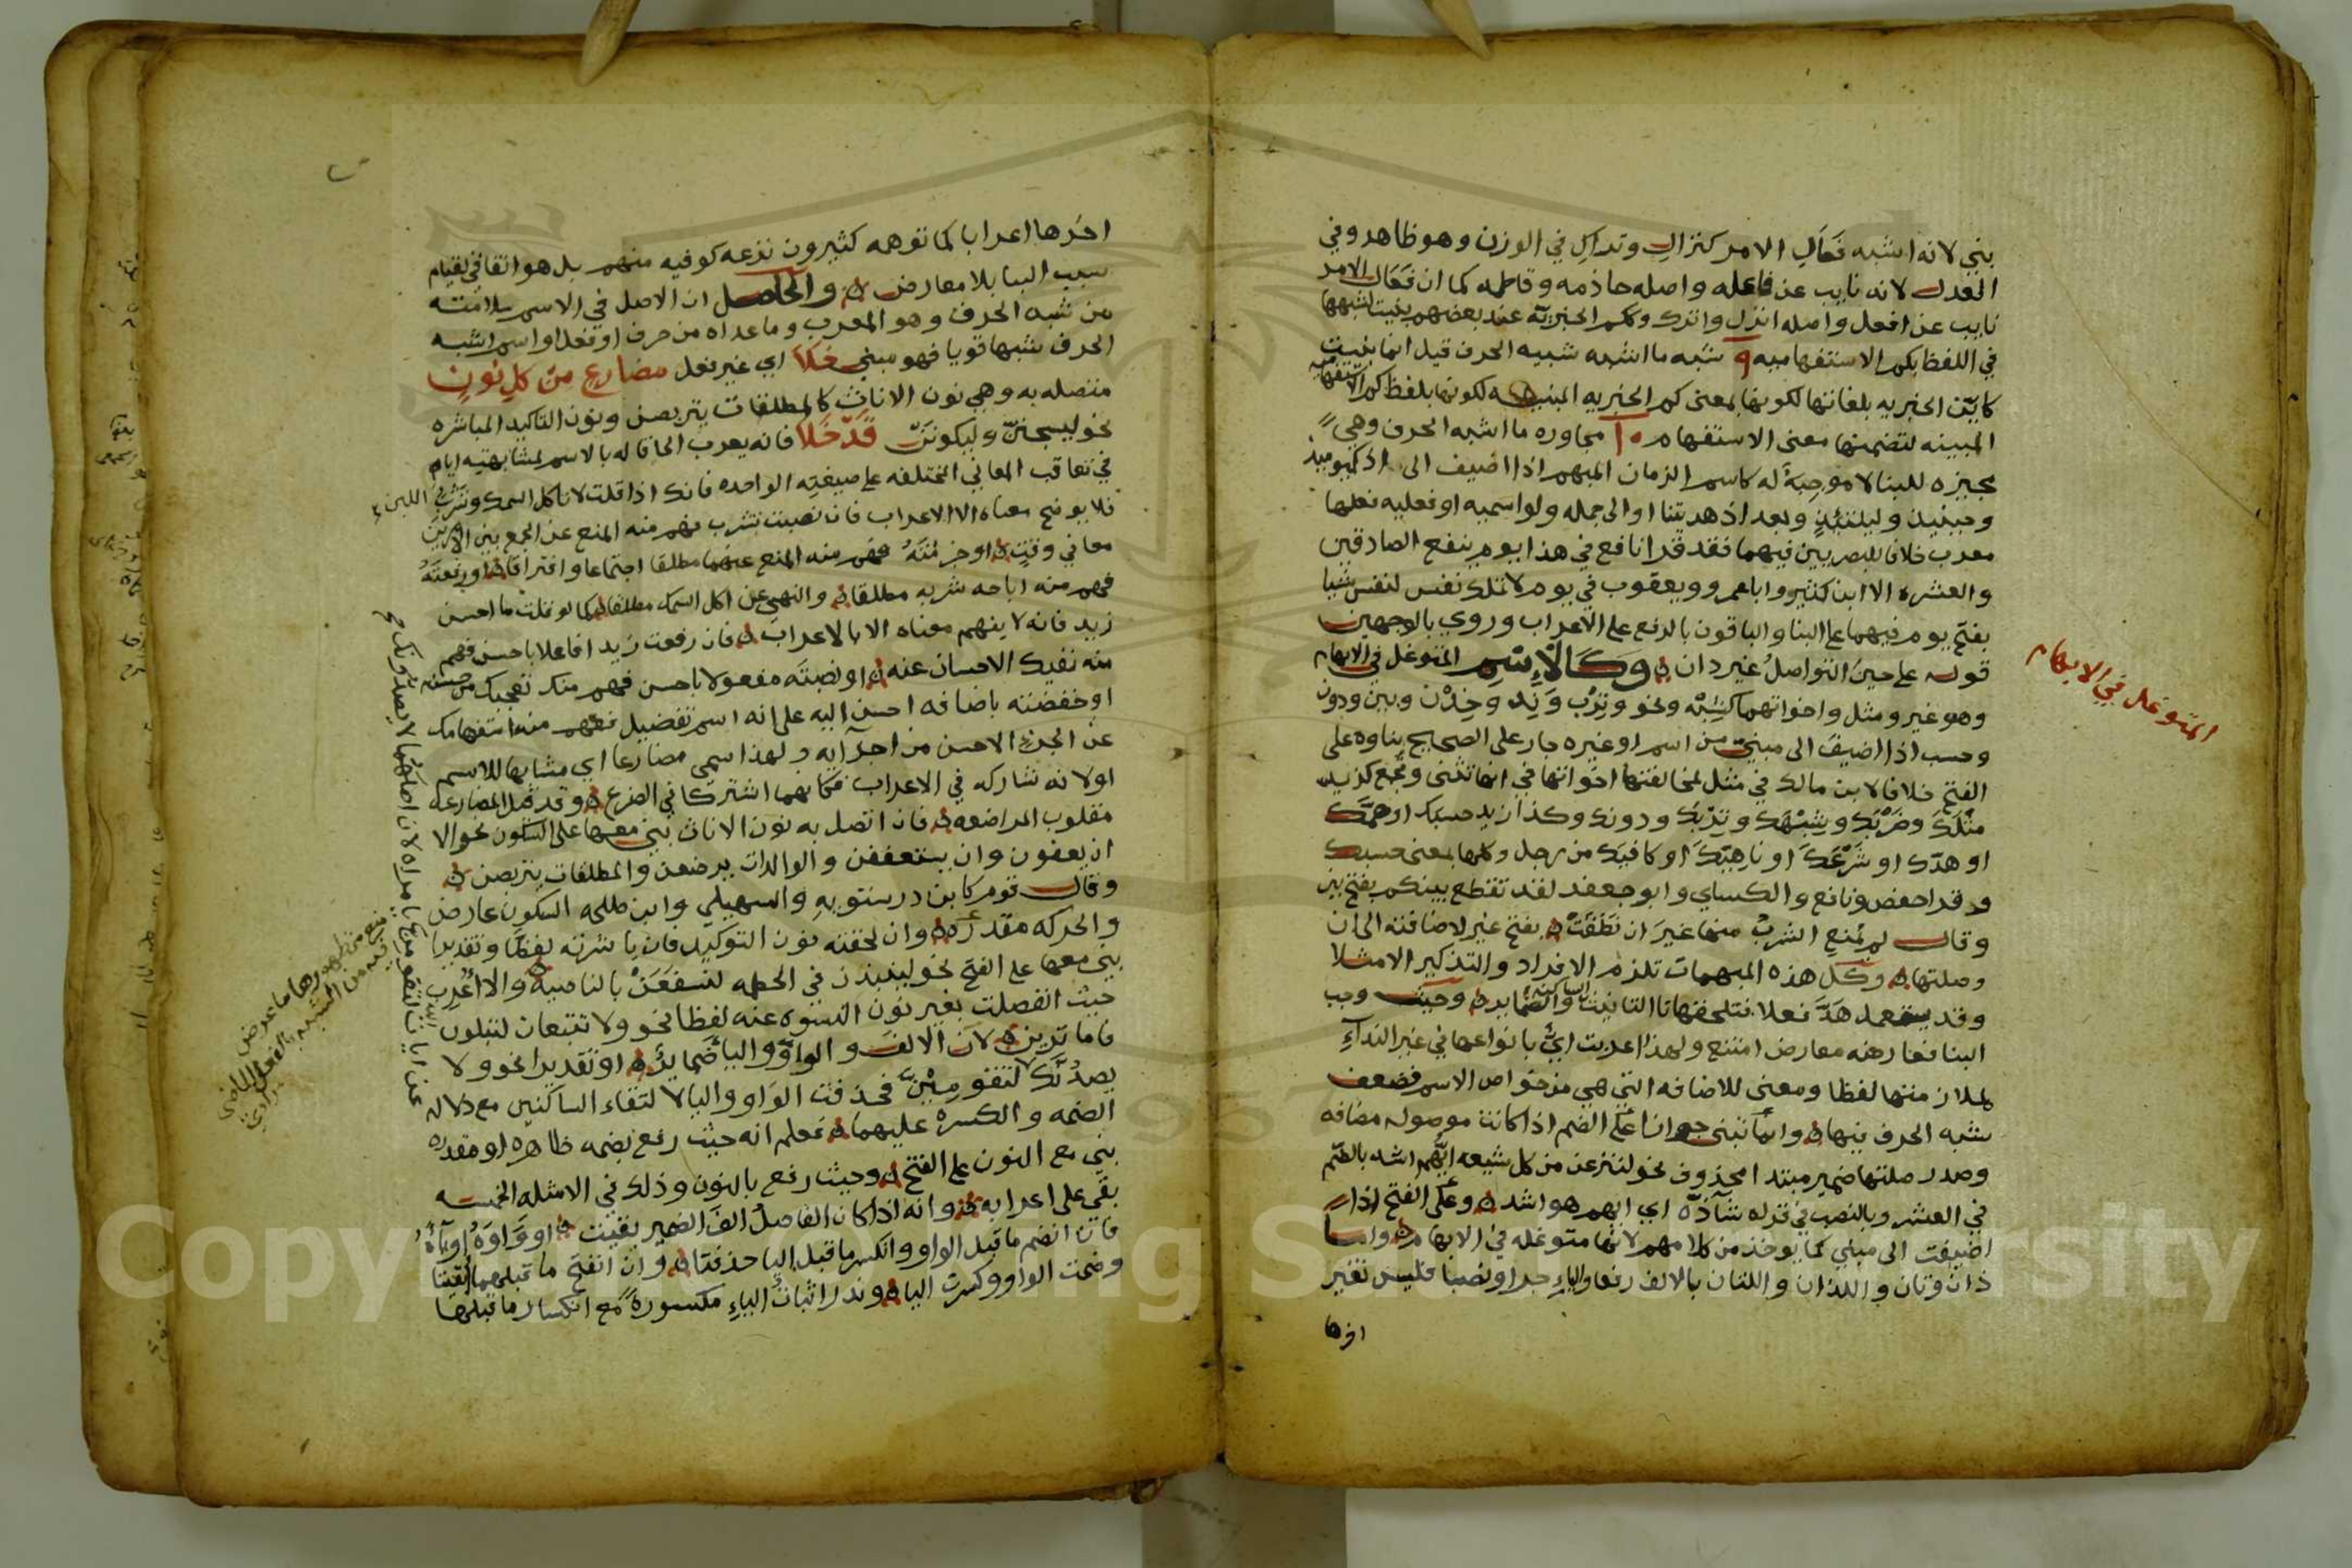 بني لانه اشبه فَعَالِ الامر كنزالِ وتداركِ في الوزن وهو ظاهر وفي
العدل لانه نايب عن فاعله واصله حاذمه وقاطمه كما ان فَعَالِ الامر
نايب عن افعل واصله انزل واترك وكم الخبريّة عند بعضهم بنيت لشبهها
في اللفظ بكم الاستفهاميه و شبه ما اشبه شبيه الحرف قيل انما بنيت
كايّن الخبريه بلغاتها لكونها بمعنى كم الخبريه المبنيه لكونها بلفظ كم الاستفهاميه
المبينه لتضمنها معنى الاستفهام مجاوره ما اشبه الحرف وهي
مجيزه للبنا لا موجِبةً له كاسم الزمان المبهم اذا اضيف الى اذ كيوميذ
وحينيذ وليلتيذٍ وبعد اذ هديتنا او الى جمله ولو اسميه او فعليه فعلها
معرب خلافا للبصريين فيهما فقد قرا نافع في هذا يوم ينفع الصادقين
والعشره الا ابن كثير وابا عمرو ويعقوب في يوم لا تملك نفس لنفس شيا
بفتح يوم فيهما على البنا والباقون بالرفع على الاعراب وروي بالوجهين
قوله على حينَ التواصلُ غير دان وَكَالْاِسْمِ المتوغل في الابهام
وهو غير ومثل واخواتهما كشِبْه ونحو وتِرْب ونِد وخِدْن وبين ودون
وحسب اذا اضيف الى مبنيّ من اسم او غيره جار على الصحيح بناوه على
الفتح خلافا لابن مالك في مثل لمخالفتها اخواتها في انها تثنى وتجمع كزيد
مثلَكَ وضَرْبَكَ وشِبْهَكَ وتِرْبَكَ ودونك وكذا زيد حسبَك او همَّك
او هدّك او شَرْعَكَ او ناهِيَكَ او كافيَك من رجل وكلها بمعنى حسبك
وقد قرا حفص ونافع والكساي وابو جعفر لقد تقطع بينكم بفتح بين
وقال لم يمنعِ الشربَ منها غيرَ ان نَطَقَتْ بفتح غير لاضافته الى ان
وصلتها وكل هذه المبهمات تلزم الافراد والتذكير الا مثلا
وقد يستعمل هَدَّ فعلا فتلحقها تا التانيث الساكنة والضماير وحيث وجب
البنا فعارضه معارض امتنع ولهذا اعربت ايٌّ بانواعها في غير النداءِ
لملازمتها لفظا ومعنى للاضافه التي هي من خواص الاسم فضعف
شبه الحرف فيها وانما تبنى جوازا على الضم اذا كانت موصوله مضافه
وصدر صلتها ضمير مبتدا محذوف نحو لننزعن من كل شيعه ايُّهم اشد بالضم
في العشر وبالنصب في قراه شاذّه اي ايهم هو اشد وعلى الفتح اذا
اضيفت الى مبني كما يوخذ من كلامهم لانها متوغله في الابهام واما
ذان وتان واللذان واللتان بالالف رفعا والياءِ جرا ونصبا فليس تغير
اخرها
المتوغل في الابهام
اخرها اعرابا كما توهمه كثيرون نزعه كوفيه منهم بل هو اتفاقي لقيام
سبب البنا بلا معارض والحاصل ان الاصل في الاسم سلامته
من شبه الحرف وهو المعرب وما عداه من حرف او فعل او اسم اشبه
الحرف شبها قويا فهو مبني خَلَا اي غير فعل مضارعٍ مِنْ كلِ نُونٍ
متصله به وهي نون الاناث كالمطلقات يتربصن ونون التاكيد المباشره
نحو ليسجننّ وليكونَنْ قَدْ خَلَا فانه يعرب الحاقا له بالاسم لمشابهته اياه
في تعاقب المعاني المختلفه على صيغتِه الواحده فانك اذا قلت لا تاكل السمك وتشربُ اللبن
فلا يوضح معناه الا الاعراب فان نصبت تشرب فهم منه المنع عن الجمع بين الامرين
معا في وقتٍ او جزمْتَهُ فهم منه المنع عنهما مطلقا اجتماعا وافتراقا او رفعتَهُ
فهم منه اباحه شربه مطلقا والنهي عن اكل السمك مطلقا كما لو قلت ما احسن
زيد فانه لا يفهم معناه الا بالاعراب فان رفعت زيدا فاعلا باحسن فهم
منه نفيك الاحسان عنه او نصبتَه مفعولا باحسن فهم منك تعجبك من حسنه
او خفضته باضافه احسن اليه على انه اسم تفضيل فهم منه استفهامك
عن الجزءِ الاحسن من اجزايه ولهذا سمي مضارعا اي مشابها للاسم
او لانه شاركه في الاعراب فكانهما اشتركا في الضرع وقد قيل المضارعه
مقلوب المراضعه فان اتصل به نون الاناث بني معها على السكون نحو الا
ان يعفون وان يستعففن والوالدات يرضعن والمطلقات يتربصن
وقال قوم كابن درستويهِ والسهيلي وابن طلحه السكون عارض
والحركه مقدره وان لحقته نون التوكيد فان باشرته لفظا وتقديرا
بني معها على الفتح نحو لينبذن في الحطمه لنسفَعَنْ بالناصية والا اُعرِب
حيث انفصلت بغير نون النسوه عنه لفظا نحو ولا تتبعان لتبلون
فاما ترين لان الالفَ والواوَ واليا ضمايرُ او تقديرا نحو ولا
يصدُنّك لتقومِنّ فحذفت الواو واليا لالتقاء الساكنين مع دلاله
الضمه والكسره عليهما فعلم انه حيث رفع بضمه ظاهره او مقدره
بني مع النون على الفتح وحيث رفع بالنون وذلك في الامثله الخمسه
بقي على اعرابه وانه اذا كان الفاصلُ الفَ الضمير بقيت او وَاوَهُ او يآءَهُ
فان انضم ما قبل الواو وانكسر ما قبل اليا حذفتا وان انفتح ما قبلهما بقيتا
وضمت الواو وكسرت اليا وندر اثبات الياءِ مكسورةً مع انكسار ما قبلها
Copyright © King Saud University